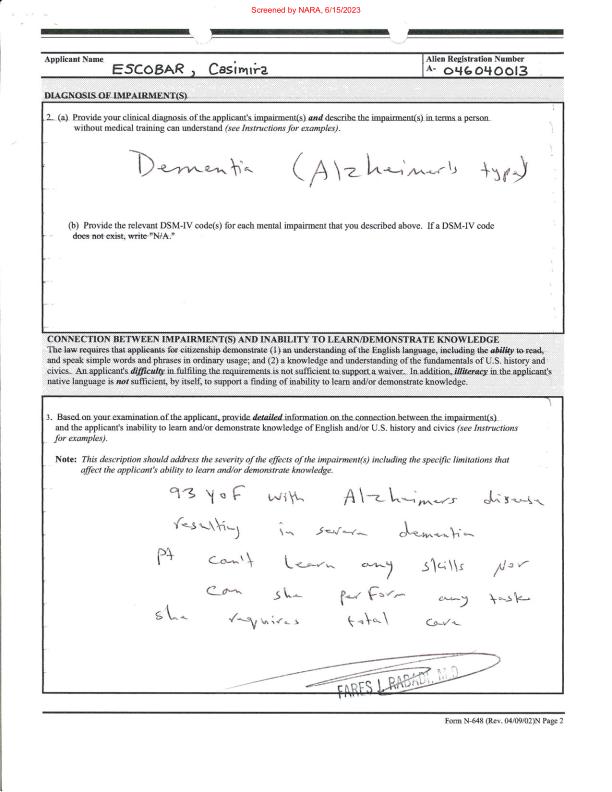 Screened by NARA, 6/15/2023
Applicant Name
ESCOBAR, Casimira
Alien Registration Number
A- 046040013
DIAGNOSIS OF IMPAIRMENT(S)
2. (a) Provide your clinical diagnosis of the applicant's impairment(s) and describe the impairment(s) in terms a person
without medical training can understand (see Instructions for examples).
Dementia (Alzheimer's type)
(b) Provide the relevant DSM-IV code(s) for each mental impairment that you described above. If a DSM-IV code
does not exist, write "N/A."
CONNECTION BETWEEN IMPAIRMENT(S) AND INABILITY TO LEARN/DEMONSTRATE KNOWLEDGE
The law requires that applicants for citizenship demonstrate (1) an understanding of the English language, including the ability to read,
and speak simple words and phrases in ordinary usage; and (2) a knowledge and understanding of the fundamentals of U.S. history and
civics. An applicant's difficulty in fulfiling the requirements is not sufficient to support a waiver. In addition, illiteracy in the applicant's
native language is not sufficient, by itself, to support a finding of inability to learn and/or demonstrate knowledge.
3. Based on your examination of the applicant, provide detailed information on the connection between the impairment(s)
and the applicant's inability to learn and/or demonstrate knowledge of English and/or U.S. history and civics (see Instructions
for examples).
Note: This description should address the severity of the effects of the impairment(s) including the specific limitations that
affect the applicant's ability to learn and/or demonstrate knowledge.
93 yo F with Alzheimers disease
resulting in severe dementia
pt can't learn any skills Nor
can she perform any task
she requires total care
FARES J. RABADI, M.D
Form N-648 (Rev. 04/09/02)N Page 2